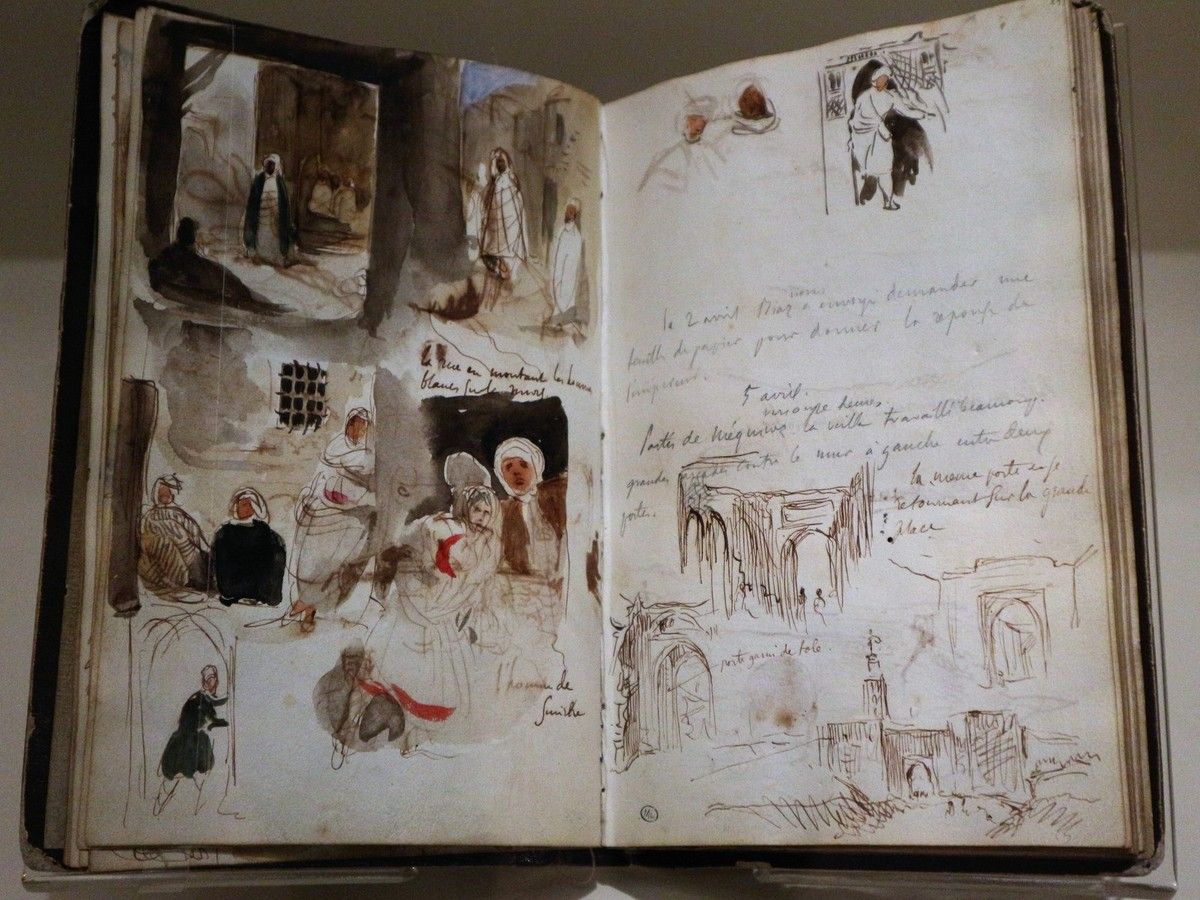 la rue en montant les hommes
blancs sur le mur
l'homme de
nous
le 2 avril Biaz a envoyé demander une
feuille de papier pour donner la réponse de
l'empereur.
5 avril.
heures.
Partis de Méquinez. la veille travaillé beaucoup.
grandes arcades contre le mur à gauche entre deux
portes.
la même porte en se
retournant sur la grande
place
porte garni de tole.